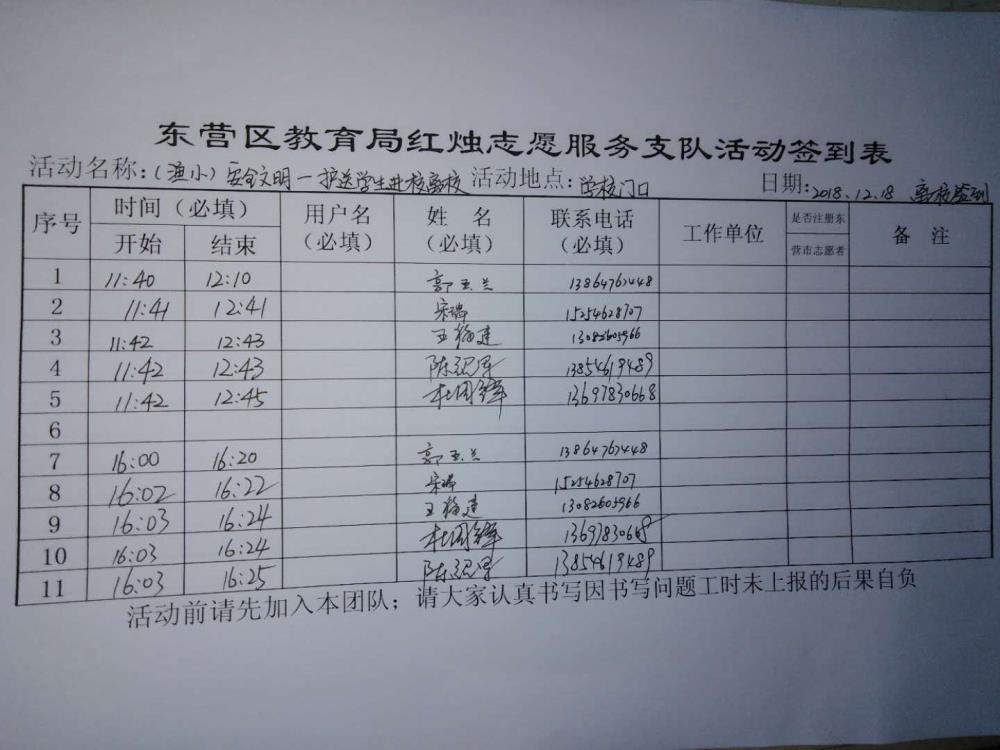 东营区教育局红烛志愿服务支队活动签到表
活动名称:(渔小)安全文明一护送学生进校离校 活动地点:学校门口 日期:2018.12.18 离校签到
序号 时间(必填) 用户名(必填) 姓名(必填) 联系电话(必填) 工作单位 是否注册东营市志愿者 备注
开始 结束
1 11:40 12:10 郭玉兰 13864762448
2 11:41 12:41 宋瑞 15254628707
3 11:42 12:43 王梅建 13082605966
4 11:42 12:43 陈 13854619489
5 11:42 12:45 杜国 13697830668
6
7 16:00 16:20 郭玉兰 13864762448
8 16:02 16:22 宋瑞 15254628707
9 16:03 16:24 王梅建 13082605966
10 16:03 16:24 杜国 13697830668
11 16:03 16:25 陈 13854619489
活动前请先加入本团队;请大家认真书写因书写问题工时未上报的后果自负